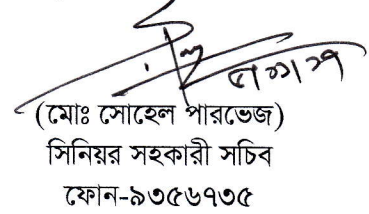 (মোঃ সোহেল পারভেজ)
সিনিয়র সহকারী সচিব
ফোন-৯৩৫৬৭৩৫